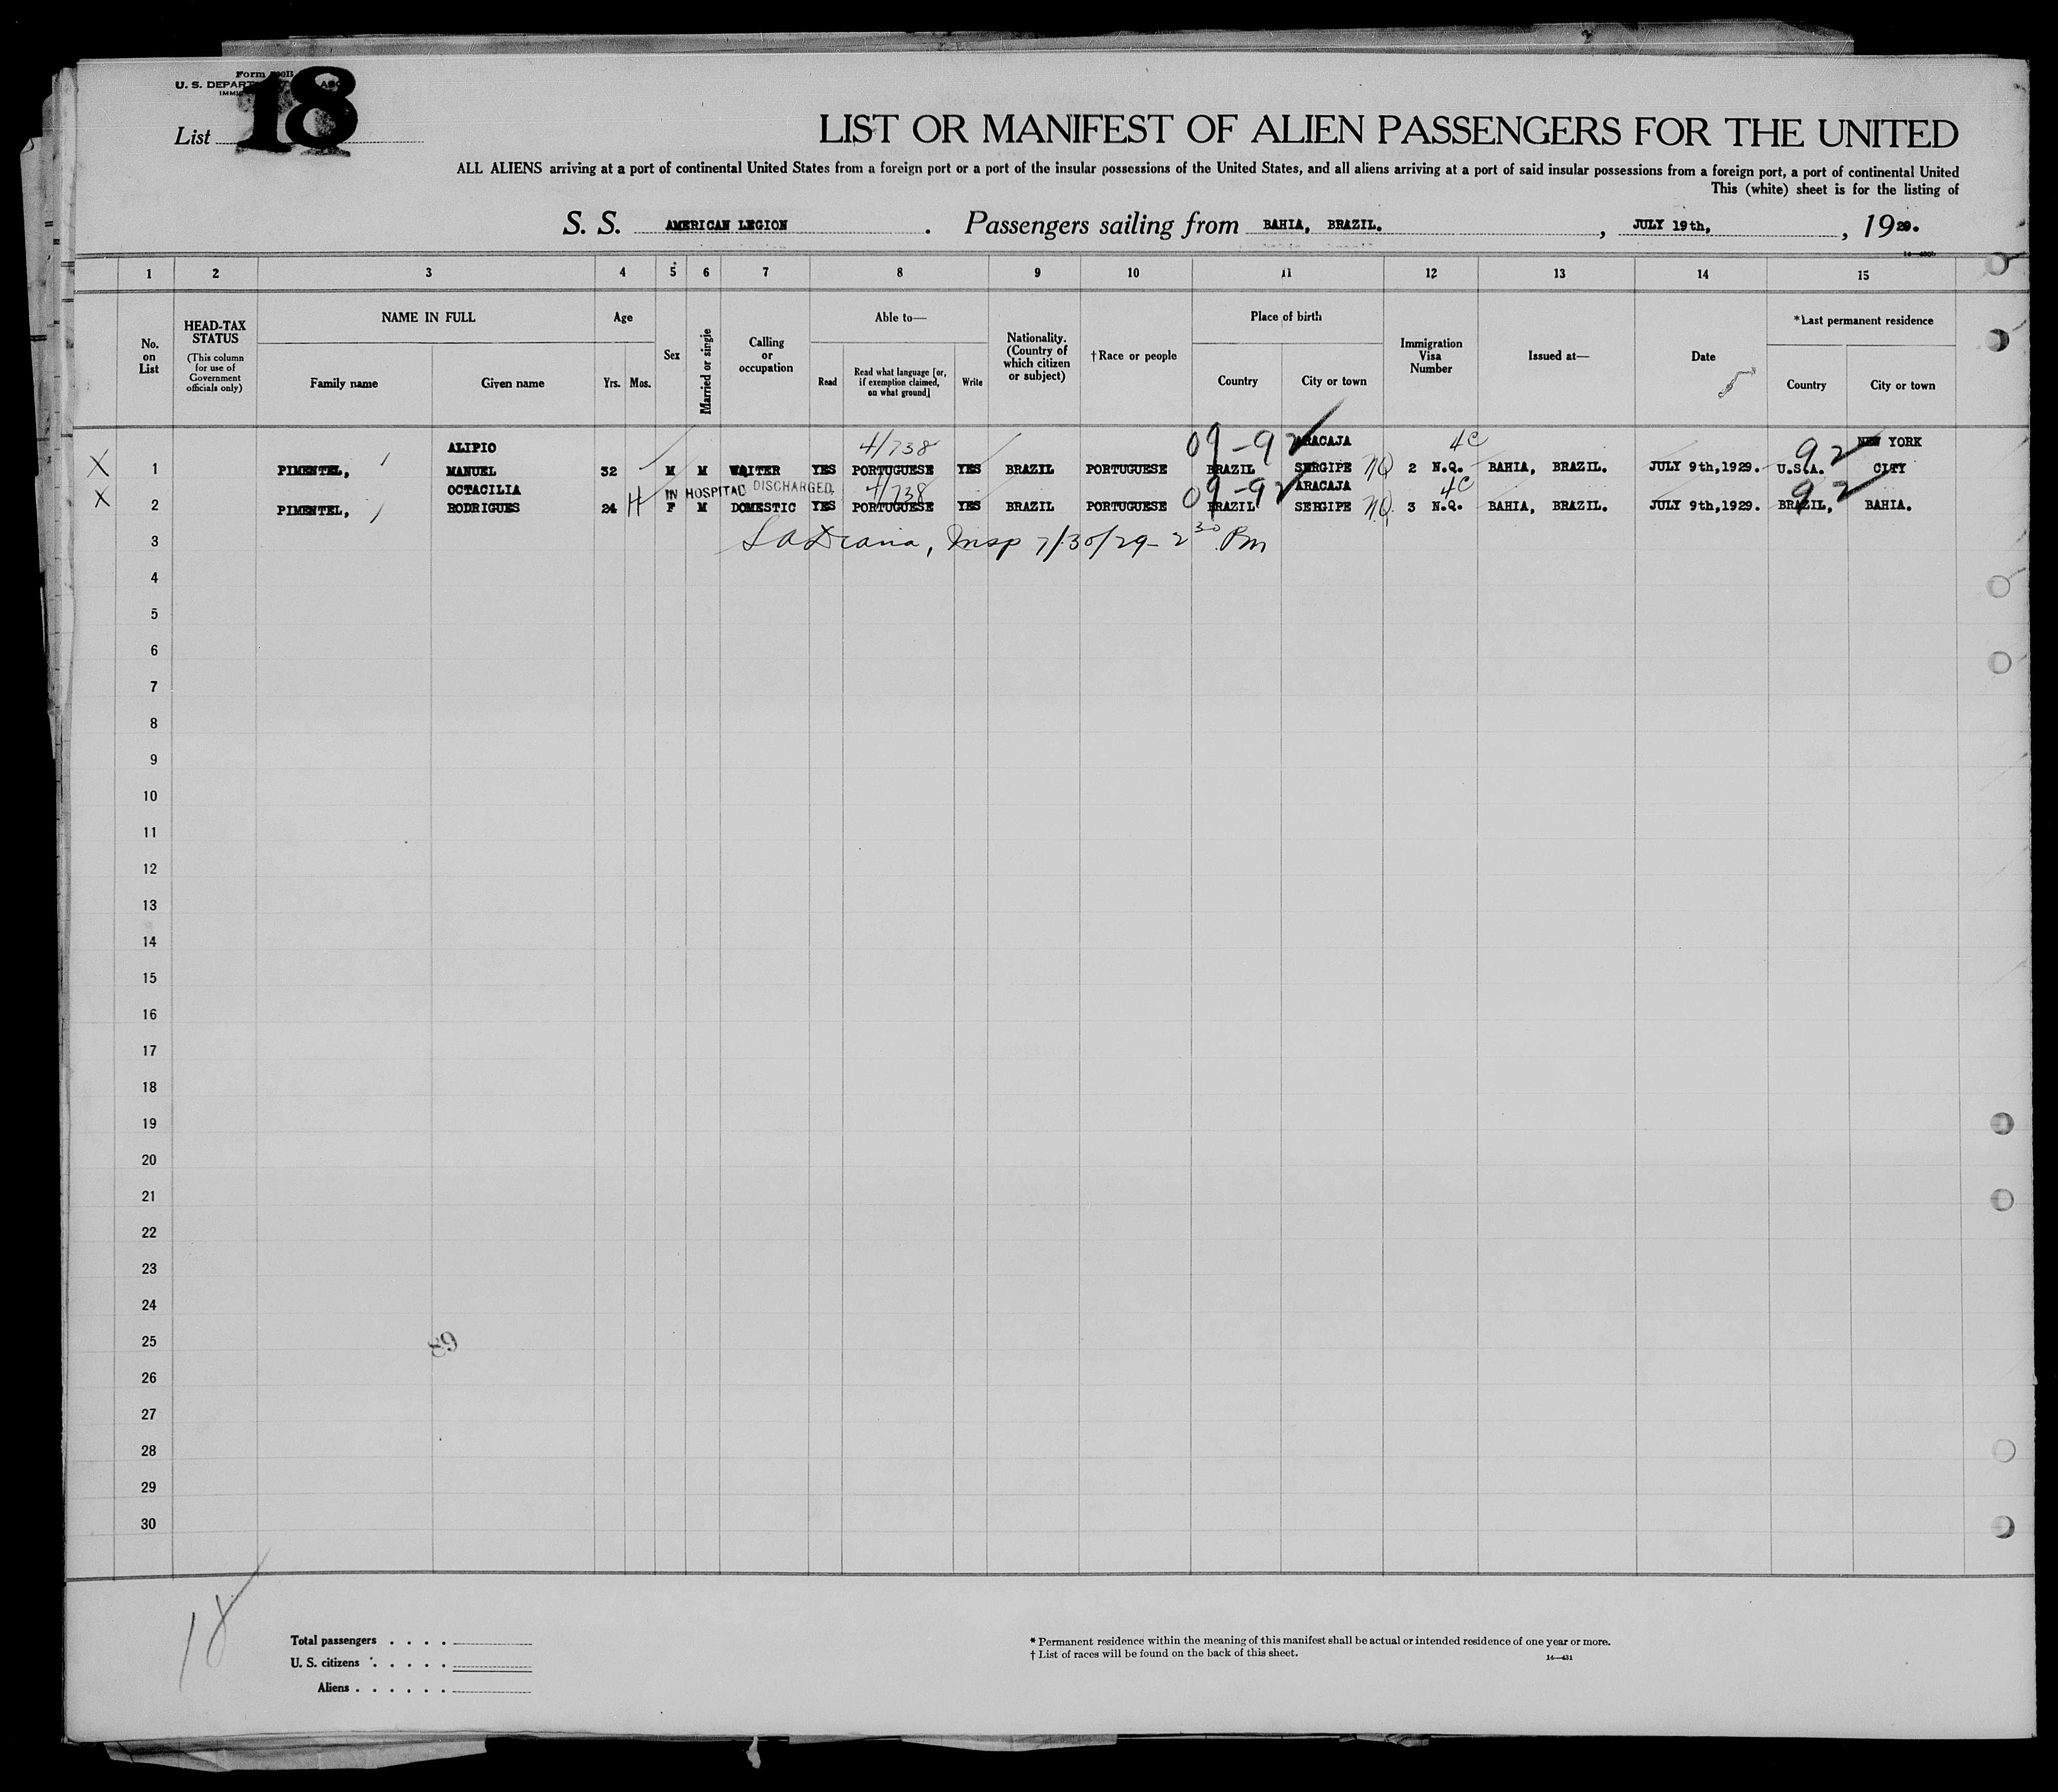 Form 500B
U. S. DEPART
List 18
LIST OR MANIFEST OF ALIEN PASSENGERS FOR THE UNITED
ALL ALIENS arriving at a port of continental United States from a foreign port or a port of the insular possessions of the United States, and all aliens arriving at a port of said insular possessions from a foreign port, a port of continental United
This (white) sheet is for the listing of
S. S. AMERICAN LEGION . Passengers sailing from BAHIA, BRAZIL. , JULY 19th, , 1929.
1 2 3 4 5 6 7 8 9 10 11 12 13 14 15
No. on List
HEAD-TAX STATUS
(This column for use of Government officials only)
NAME IN FULL
Family name Given name
Age
Yrs. Mos.
Sex
Married or single
Calling or occupation
Able to—
Read
Read what language [or, if exemption claimed, on what ground]
Write
Nationality. (Country of which citizen or subject)
†Race or people
Place of birth
Country City or town
Immigration Visa Number
Issued at—
Date
*Last permanent residence
Country City or town
ALIPIO 4/738 09-92 ARACAJA 4C 92 NEW YORK
X 1 PIMENTEL, MANUEL 32 M M WAITER YES PORTUGUESE YES BRAZIL PORTUGUESE BRAZIL SERGIPE NQ 2 N.Q. BAHIA, BRAZIL. JULY 9th,1929. U.S.A. CITY
X OCTACILIA IN HOSPITAL DISCHARGED 4/738 09-92 ARACAJA 4C 92
2 PIMENTEL, RODRIGUES 24 H F M DOMESTIC YES PORTUGUESE YES BRAZIL PORTUGUESE BRAZIL SERGIPE NQ. 3 N.Q. BAHIA, BRAZIL. JULY 9th,1929. BRAZIL, BAHIA.
3 Insp 7/30/29- 2 30 Pm
4
5
6
7
8
9
10
11
12
13
14
15
16
17
18
19
20
21
22
23
24
25
26
27
28
29
30
18
Total passengers . . . .
U. S. citizens . . . . .
Aliens . . . . . .
* Permanent residence within the meaning of this manifest shall be actual or intended residence of one year or more.
† List of races will be found on the back of this sheet.
14—431